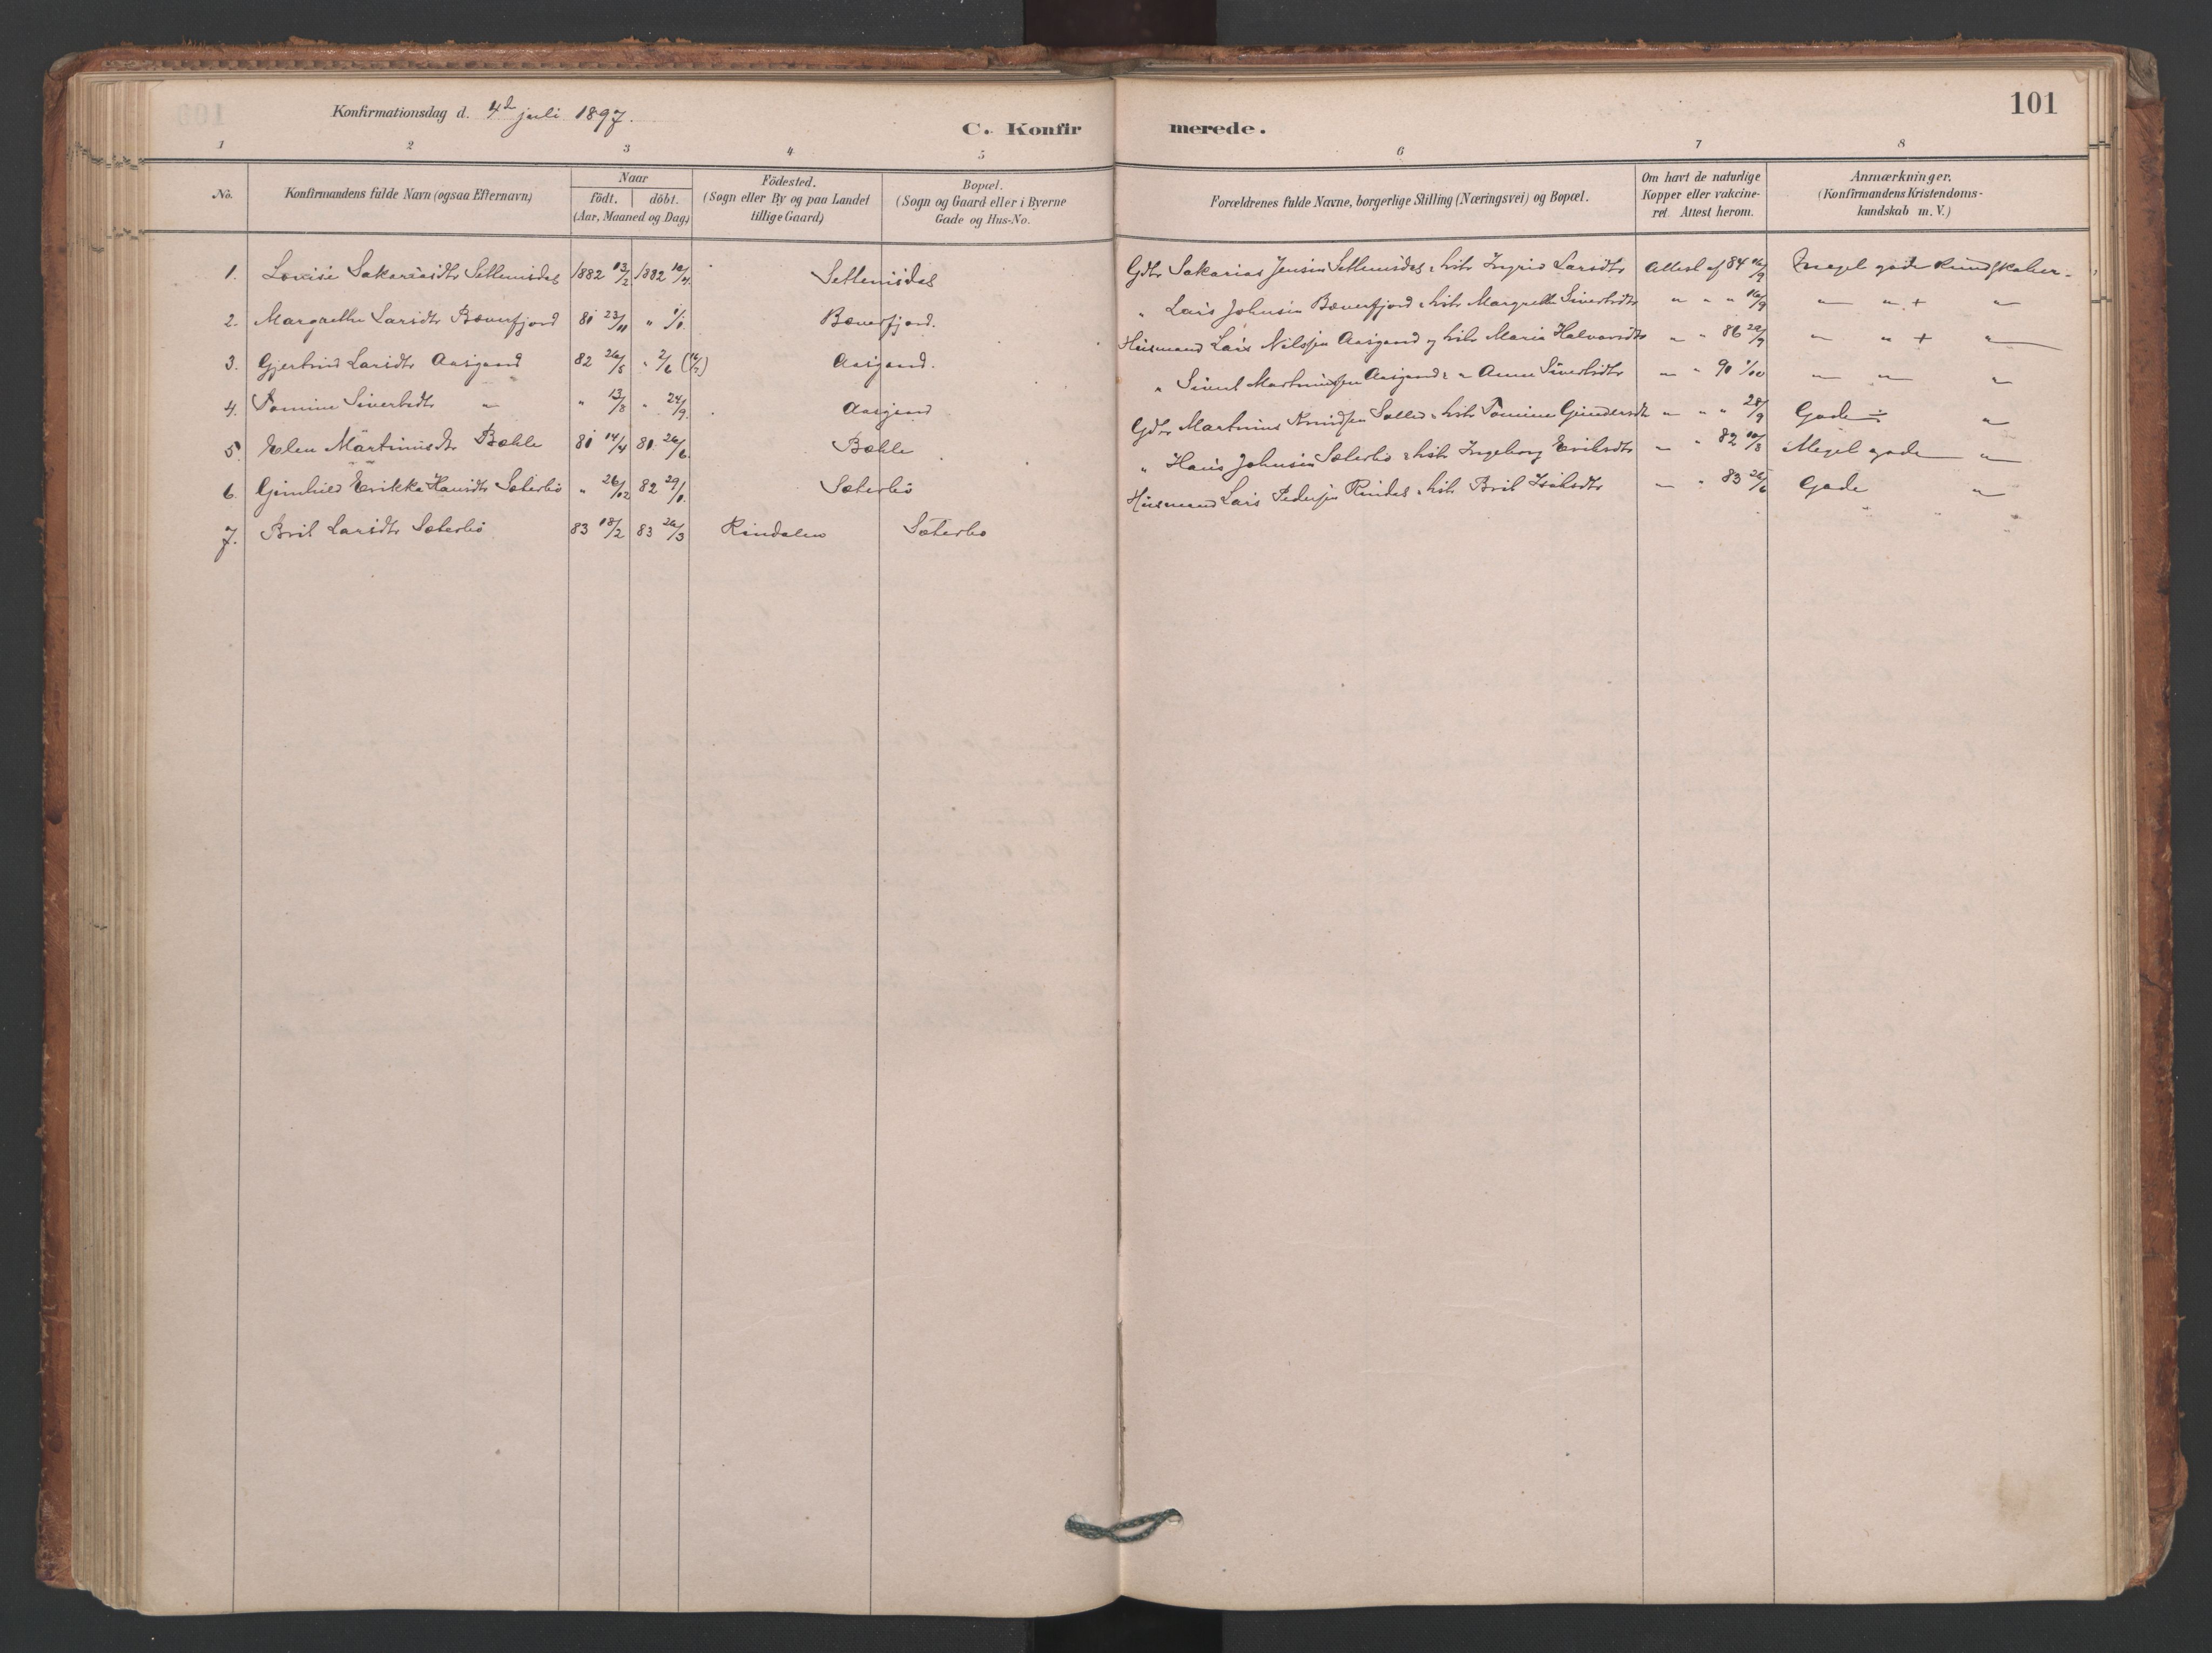 Konfirmationsdag d. 4de juli 1897.
C. Konfir merede.
101
1 2 3 4 5 6 7 8
No.
Konfirmandens fulde Navn (ogsaa Efternavn)
Naar
födt. döbt.
(Aar, Maaned og Dag)
Födested.
(Sogn eller By og paa Landet
tillige Gaard)
Bopæl.
(Sogn og Gaard eller i Byerne
Gade og Hus-No.
Forældrenes fulde Navne, borgerlige Stilling (Næringsvei) og Bopæl.
Om havt de naturlige
Kopper eller vakcine-
ret. Attest herom.
Anmærkninger.
(Konfirmandens Kristendoms-
kundskab m. V.)
1. Lovise Sakariasdtr Settemsdal 1882 13/2 1882 10/4 Settemsdal Gdbr Sakarias Jensen Settemsdal & hstr Ingrid Larsdtr Attest af 84 16/9 Meget gode kundskaber.
2. Margrethe Larsdtr Bæverfjord 81 23/11 " 1/1. Bæverfjord. " Lars Johnsen Bæverfjord & hstr Margrethe Sivertsdtr " " " 16/9 " " + "
3. Gjertrud Larsdtr Aasgaard 82 26/5 " 2/6 Aasgaard. Husmand Lars Nilssen Aasgaard og hstr Maria Halvorsdtr " " 86 22/9 " " + "
4. Tomine Sivertsdtr " " 13/8 " 24/9. Aasgaard " Sivert Martinussen Aasgaard & " Anne Sivertsdtr " " 90 1/10 " " "
5. Elen Martinusdtr Bæhle 81 14/4 81 26/6. Bæhle Gdbr Martinus Knudsen & hstr Tomine Gundersdt " " " 28/9 Gode ÷ "
6. Gunhild Erikka Hansdtr Sæterbö " 26/12 82 29/1. Sæterbö " Hans Johnsen Sæterbö & hstr Ingeborg Eriksdtr " " 82 10/8 Meget gode "
7. Brit Larsdtr Sæterbö 83 18/2 83 26/3 Rindalen Sæterbö Husmand Lars Pedersen Rindal & hstr Brit Isaksdtr " " 83 26/6 Gode "